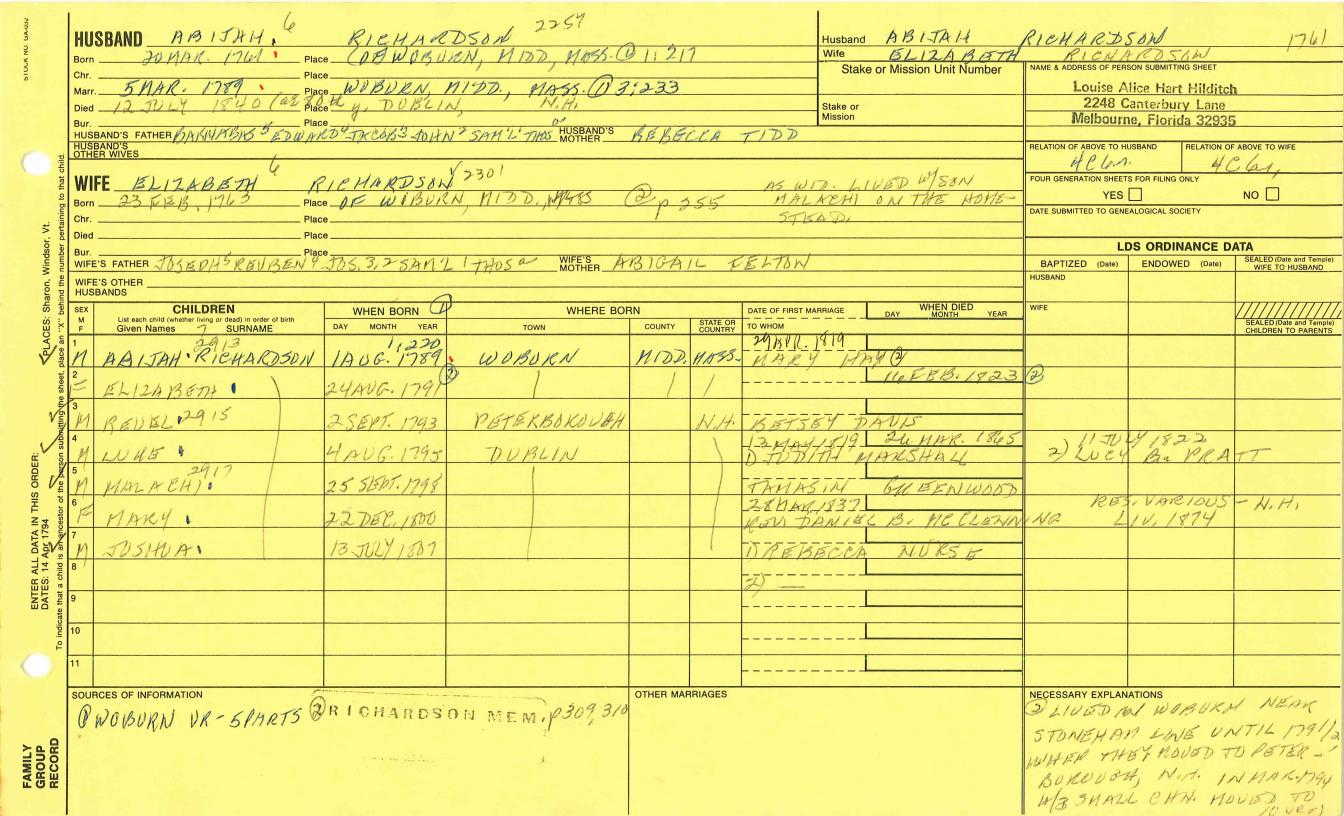 STOCK NO.
HUSBAND ABIJAH 6 RICHARDSON 2257
Born 20 MAR. 1761 Place (OF WOBURN, MIDD, MASS. ① 1:217
Chr. Place
Marr. 5 MAR. 1789 Place WOBURN, MIDD., MASS. ① 3:233
Died 12 JULY 1840 (ae 80th y, Place DUBLIN, N.H.
Bur. Place
HUSBAND'S FATHER BARNABAS 5 EDWARD 4 JACOB 3 JOHN 2 SAM'L 1 THOS HUSBAND'S MOTHER REBECCA TIDD
HUSBAND'S OTHER WIVES
WIFE ELIZABETH 6 RICHARDSON √2301
Born 23 FEB, 1763 Place OF WOBURN, MIDD., MASS ② p 255
Chr. Place
Died Place
Bur. Place
AS WID. LIVED W/SON
MALACHI ON THE HOME-
STEAD.
WIFE'S FATHER JOSEPH 5 REUBEN 4 JOS. 3, 2 SAM'L 1 THOS a WIFE'S MOTHER ABIGAIL FELTON
WIFE'S OTHER HUSBANDS
Husband ABIJAH RICHARDSON 1761
Wife ELIZABETH RICHARDSON
Stake or Mission Unit Number
Stake or Mission
NAME & ADDRESS OF PERSON SUBMITTING SHEET
Louise Alice Hart Hilditch
2248 Canterbury Lane
Melbourne, Florida 32935
RELATION OF ABOVE TO HUSBAND RELATION OF ABOVE TO WIFE
4C6r. 4C6r.
FOUR GENERATION SHEETS FOR FILING ONLY
YES NO
DATE SUBMITTED TO GENEALOGICAL SOCIETY
LDS ORDINANCE DATA
BAPTIZED (Date) ENDOWED (Date) SEALED (Date and Temple) WIFE TO HUSBAND
HUSBAND
WIFE
SEALED (Date and Temple) CHILDREN TO PARENTS
SEX M F
CHILDREN
List each child (whether living or dead) in order of birth
Given Names 7 SURNAME
WHEN BORN ①
DAY MONTH YEAR
WHERE BORN
TOWN COUNTY STATE OR COUNTRY
DATE OF FIRST MARRIAGE
TO WHOM
WHEN DIED
DAY MONTH YEAR
1 2913 1,220 29 APR. 1819
M ABIJAH RICHARDSON 1 AUG. 1789 WOBURN MIDD. MASS. MARY HAY ②
2 ② 16 FEB. 1823 ②
F ELIZABETH 24 AUG. 1791
3
M REUEL 2915 2 SEPT. 1793 PETERBOROUGH N.H. BETSEY DAVIS
4 13 MAY 1819 26 MAR. 1865 11 JULY 1822
M LUKE 4 AUG. 1795 DUBLIN 1) JUDITH MARSHALL 2) LUCY B. PRATT
5 2917
M MALACHI 25 SEPT. 1798 TAMASIN GREENWOOD
6 28 MAR 1837 RES. VARIOUS - N.H.
F MARY 22 DEC. 1800 REV. DANIEL B. MC CLENNING LIV. 1874
7
M JOSHUA 13 JULY 1807 1) REBECCA NURSE
8 2) —
9
10
11
SOURCES OF INFORMATION
① WOBURN VR - 5 PARTS ② RICHARDSON MEM. p 309, 310
OTHER MARRIAGES
NECESSARY EXPLANATIONS
② LIVED IN WOBURN NEAR
STONEHAM LINE UNTIL 1791/2
WHEN THEY MOVED TO PETER-
BOROUGH, N.H. IN MAR. 1794
W/3 SMALL CHN. MOVED TO
ENTER ALL DATA IN THIS ORDER:
DATES: 14 Apr 1794
PLACES: Sharon, Windsor, Vt.
To indicate that a child is an ancestor of the person submitting the sheet, place an "X" behind the number pertaining to that child.
FAMILY GROUP RECORD